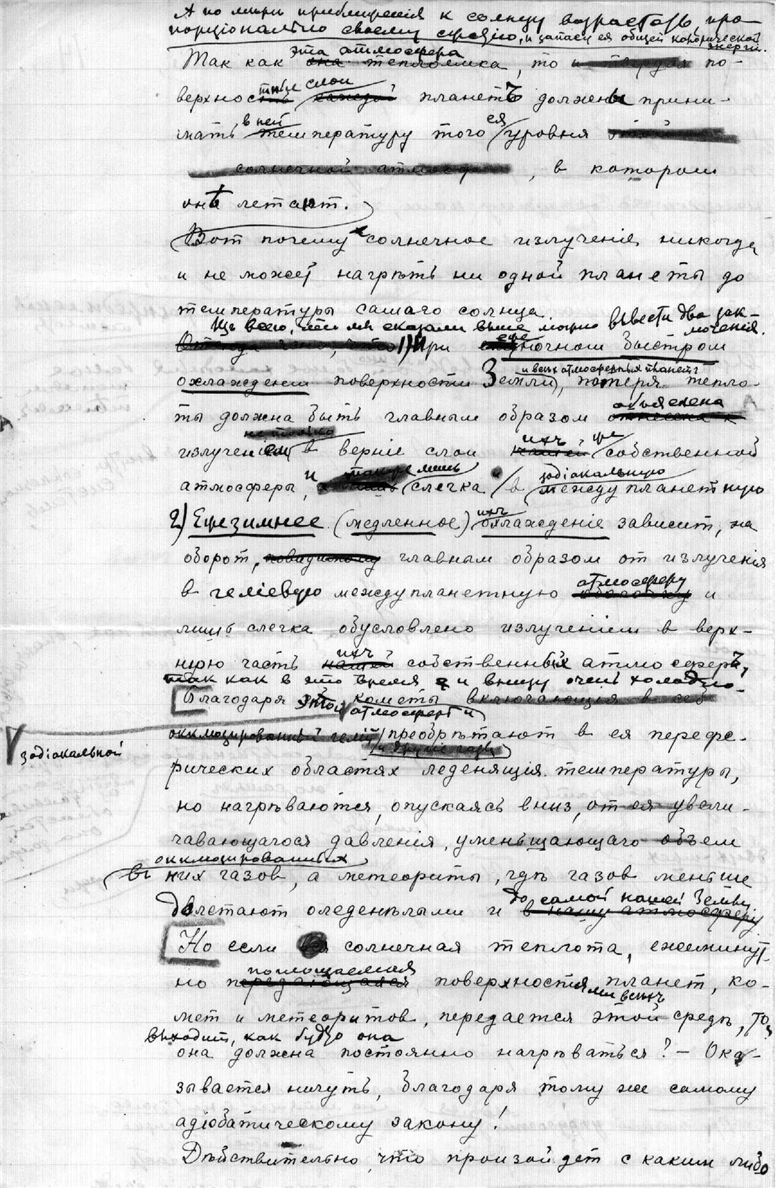 А по мѣрѣ приближенія к солнцу возрастать, про-
порціонально своему сжатію, и запасъ ея общей кинетической энергіи.
Так как эта атмосфера теплоемка, то по-
верхностные слои планетъ должны прини-
мать в ней температуру того ея уровня
солнечной атмосферы, в котором
онѣ летают.
Вот почему солнечное излученіе никогда
и не может нагрѣть ни одной планеты до
температуры самаго солнца.
Изъ всего, что мы сказали выше можно вывести два зак-
лючения.
1) При еженочном быстром
охлаждении поверхности Земли и всех атмосферных планет, потеря тепло-
ты должна быть главным образом объяснена
излучением в верхніе слои ихъ же собственной
атмосферы, и лишь слегка в зодіакальную междупланетную
2) Ежезимнее (медленное) ихъ охлажденіе зависит, на
оборот, повидимому главным образом от излученія
в геліевую междупланетную атмосферу и
лишь слегка обусловлено излученіем в верх-
нюю часть ихъ собственных атмосферъ,
так как в это время и внизу очень холодно.
Благодаря этой кометы включающія в себѣ
зодіакальной
атмосферѣ и
окклюдированный гелій преобрѣтают в ея перефе-
рических областях леденящія температуры,
но нагрѣваются, опускаясь вниз, от ея увели-
чавающагося давленія, уменьщающаго объем
окклюдированных
в них газов, а метеориты, гдѣ газов меньше
долетают оледенѣлыми и до самой нашей Земли
в нашу атмосферу.
Но если солнечная теплота, ежеминут-
но поглощаемая поверхностями планет, ко-
мет и метеоритов, передается этой средѣ, то
выходит, как будто она
она должна постоянно нагрѣваться? — Ока-
зывается ничуть, благодаря тому же самому
адіобатическому закону!
Дѣйствительно, что произойдет с каким либо